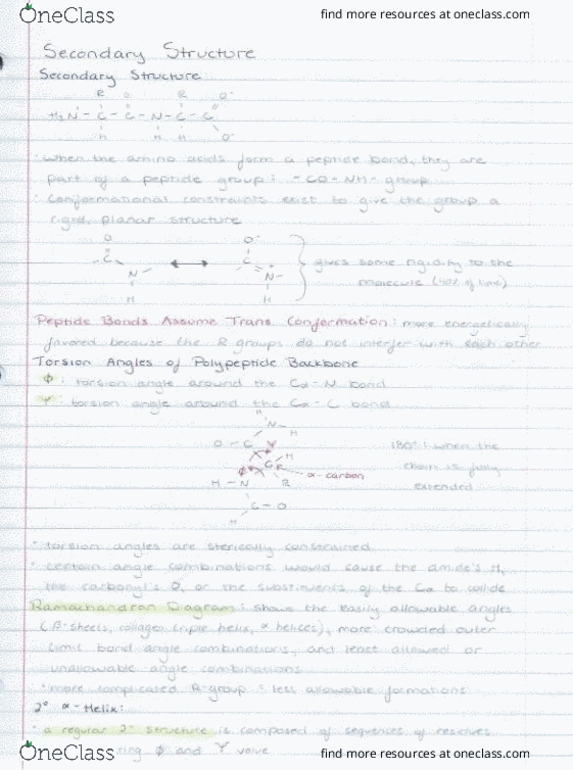 OneClass
find more resources at oneclass.com
Secondary Structure
Secondary Structure
R O R O
H₂N - C - C - N - C - C
H H H O⁻
· when the amino acids form a peptide bond, they are
part of a peptide group: -CO-NH- group
· conformational constraints exist to give the group a
rigid, planar structure
O O⁻
C N C N
H H
gives some rigidity to the
molecule (40% of time)
Peptide Bonds Assume Trans Conformation: more energetically
favored because the R groups do not interfer with each other
Torsion Angles of Polypeptide Backbone
Φ: torsion angle around the Cα-N bond
Ψ: torsion angle around the Cα-C bond
H
N H
O - C Ψ
H
Φ Cα
R
α-carbon
H - N
C - O
H
180°: when the
chain is fully
extended
· torsion angles are sterically constrained
· certain angle combinations would cause the amide's H,
the carbonyl's O, or the substituents of the Cα to collide
Ramachandran Diagram: shows the easily allowable angles
(β-sheets, collagen triple helix, α helices), more crowded outer
limit bond angle combinations, and least allowed or
unallowable angle combinations
· more complicated R-group: less allowable formations
2° α-Helix:
· a regular 2° structure is composed of sequences of residues
ring Φ and Ψ value
OneClass
find more resources at oneclass.com